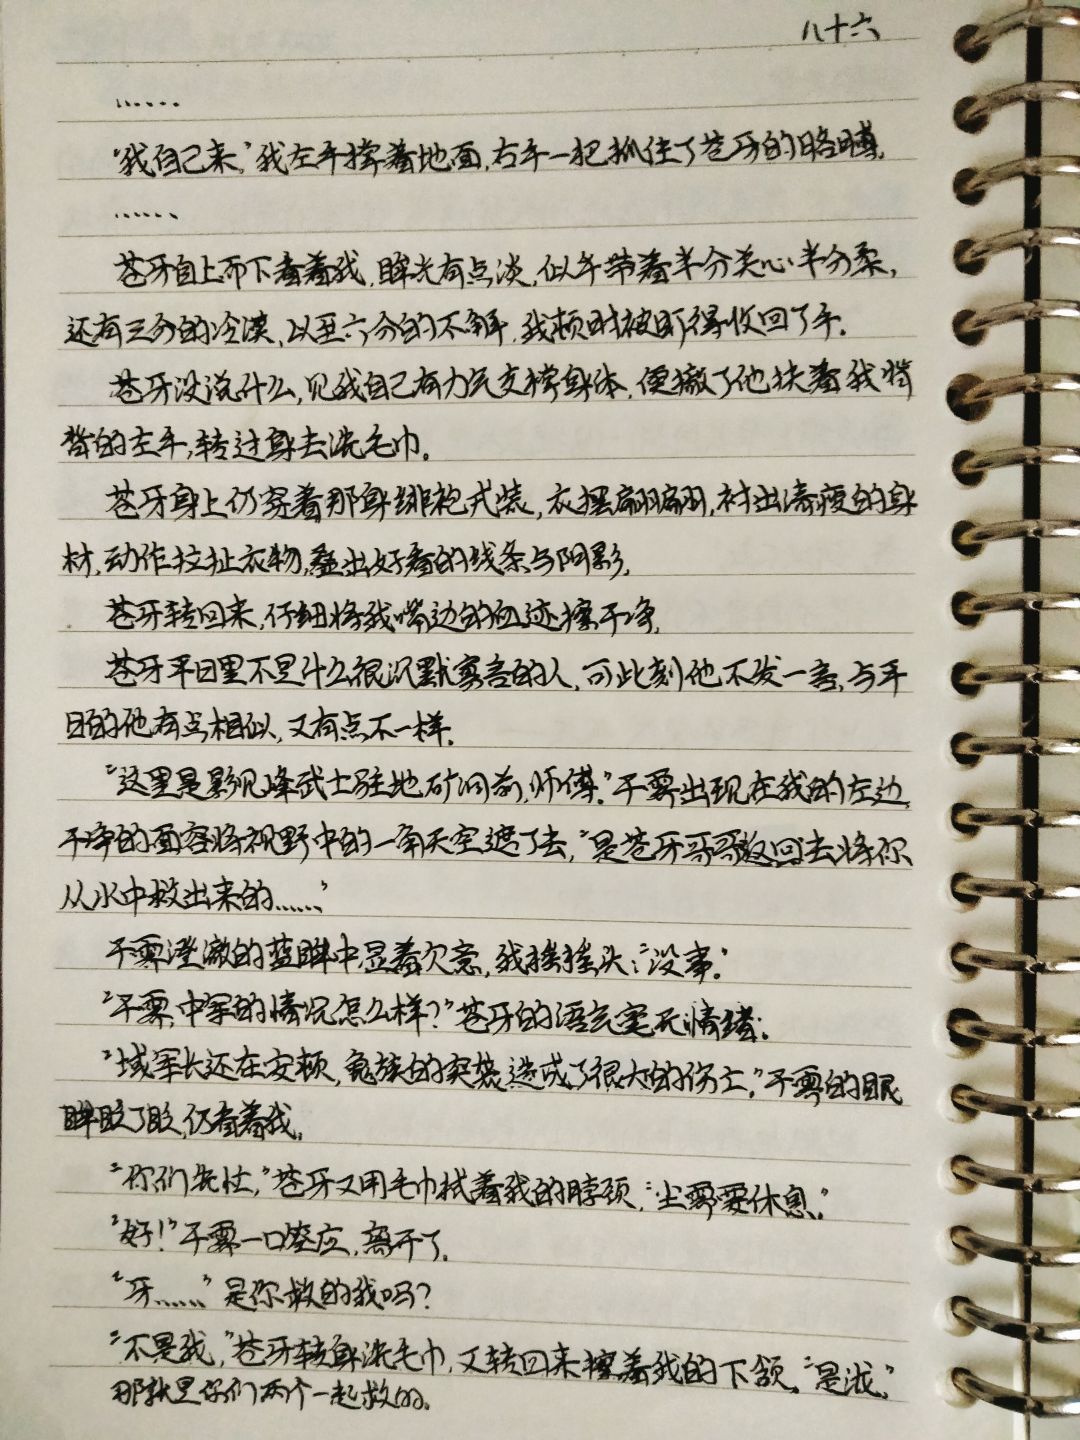 八十六
……
“我自己来，”我左手撑着地面，右手一把抓住了苍牙的胳膊。
……
苍牙自上而下看着我，眸光有点淡，似乎带着半分关心半分柔，
还有三分的冷漠，以至六分的不解，我顿时被盯得收回了手。
苍牙没说什么，见我自己有力气支撑身体，便撤了他扶着我脊
背的左手，转过身去洗毛巾。
苍牙身上仍穿着那身绯袍武装，衣摆翩翩，衬出清瘦的身
材，动作拉扯衣物，叠出好看的线条与阴影。
苍牙转回来，仔细将我嘴边的血迹擦干净。
苍牙平日里不是什么很沉默寡言的人，可此刻他不发一言，与平
日的他有点相似，又有点不一样。
“这里是影见峰武士驻地矿洞前，师傅。”千雾出现在我的左边，
干净的面容将视野中的一角天空遮了去，“是苍牙哥哥返回去将你
从水中救出来的……”
千雾澄澈的蓝眸中显着欠意，我摇摇头：“没事。”
“千雾，中军的情况怎么样？”苍牙的语气毫无情绪。
“域军长还在安顿，鬼族的突袭造成了很大的伤亡。”千雾的眼
眸眨了眨，仍看着我。
“你们先忙，”苍牙又用毛巾拭着我的脖颈，“尘雾要休息。”
“好！”千雾一口答应，离开了。
“牙……”是你救的我吗？
“不是我，”苍牙转身洗毛巾，又转回来擦着我的下颌。“是泷。”
那就是你们两个一起救的。